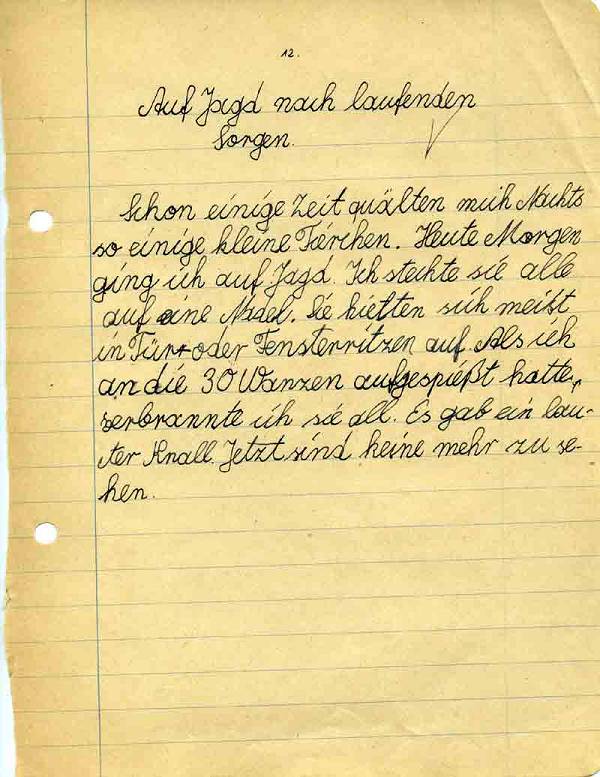 12.
Auf Jagd nach laufenden
Sorgen.
Schon einige Zeit quälten mich Nachts
so einige kleine Tierchen. Heute Morgen
ging ich auf Jagd. Ich steckte sie alle
auf eine Nadel. Sie hielten sich meißt
in Tür- oder Fensterritzen auf. Als ich
an die 30 Wanzen aufgespießt hatte,
verbrannte ich sie all. Es gab ein lau-
ter Knall. Jetzt sind keine mehr zu se-
hen.